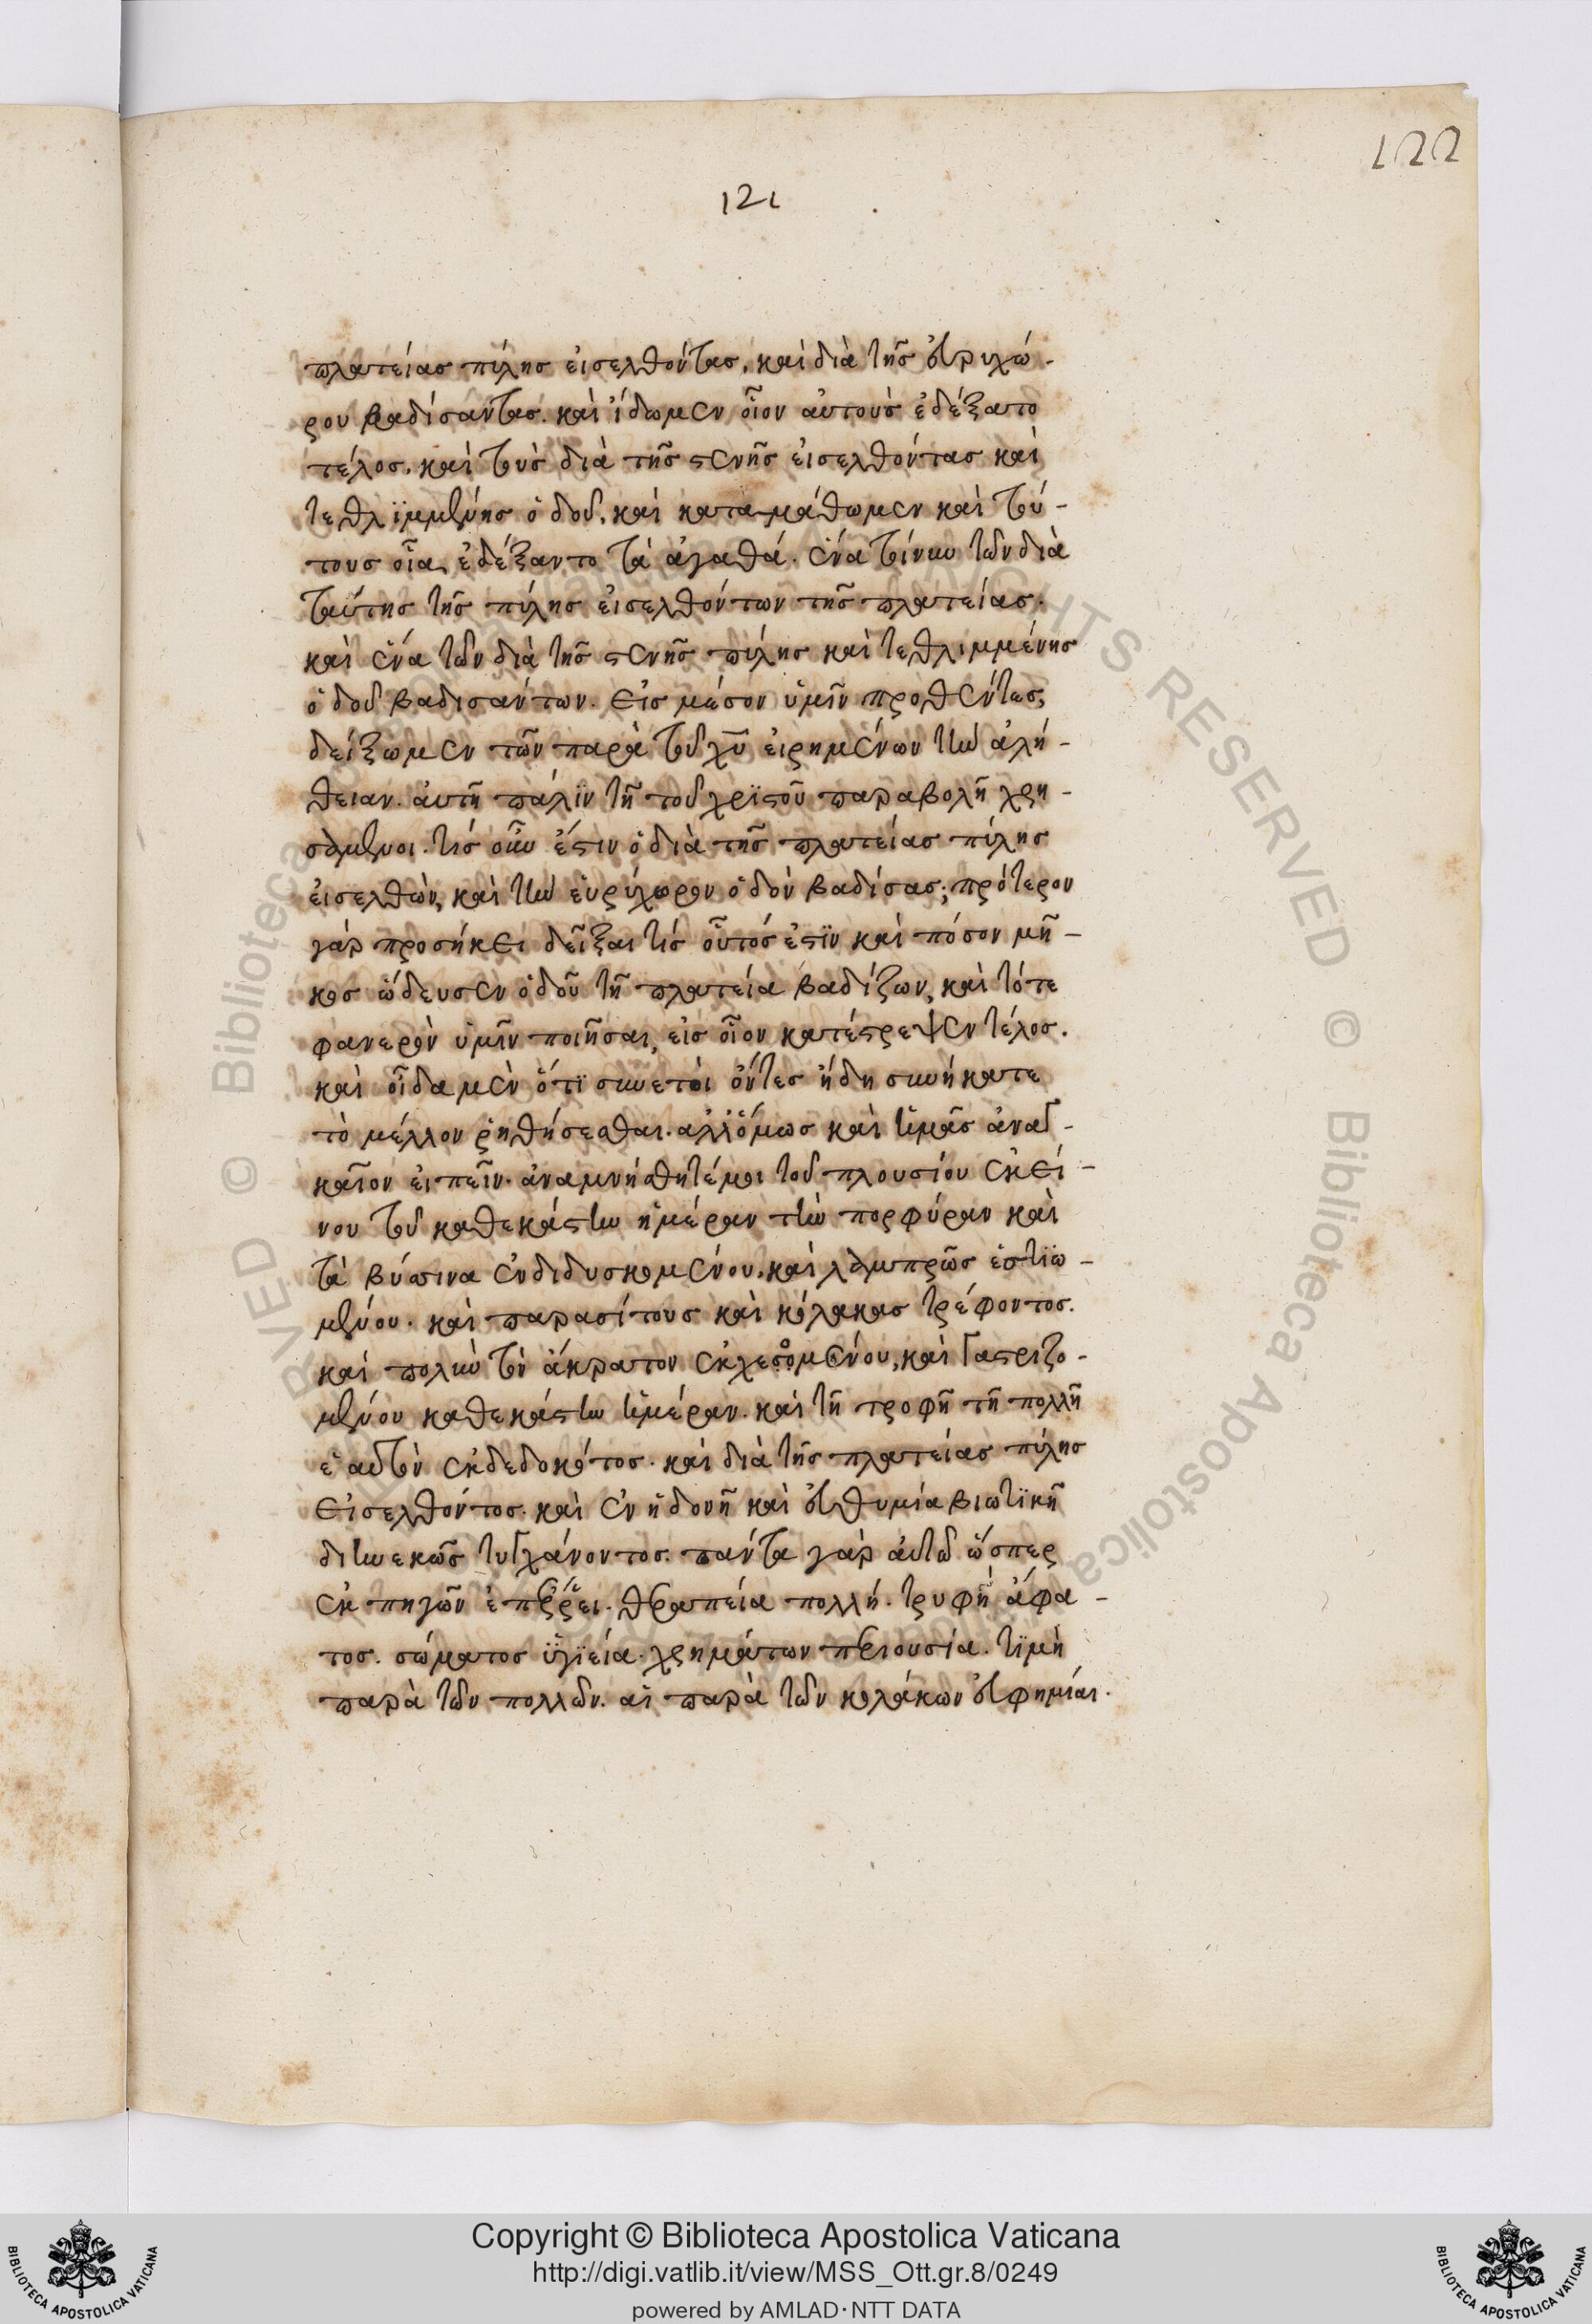 122
121
πλατείας πύλης εἰσελθόντας. καὶ διὰ τῆς εὐρυχώ-
ρου βαδίσαντας. καὶ ἴδωμεν οἷον αὐτοὺς ἐδέξατο
τέλος. καὶ τοὺς διὰ τῆς στενῆς εἰσελθόντας καὶ
τεθλϊμμένης ὁδοῦ. καὶ καταμάθωμεν καὶ τού-
τους οἷα ἐδέξαντο τὰ ἀγαθά. ἕνα τοίνυν τῶν διὰ
ταύτης τῆς πύλης εἰσελθόντων τῆς πλατείας.
καὶ ἕνα τῶν διὰ τῆς στενῆς πύλης καὶ τεθλιμμένης
ὁδοῦ βαδισάντων. εἰς μέσον ὑμῖν προθέντες,
δείξωμεν τῶν παρὰ τοῦ χυ εἰρημένων τὴν ἀλή-
θειαν. αὐτῆ πάλϊν τῆ τοῦ χρϊστοῦ παραβολῆ χρη-
σάμενοι. τίς οὖν ἐστιν ὁ διὰ τῆς πλατείας πύλης
εἰσελθὼν, καὶ τὴν εὐρύχωρον ὁδὸν βαδίσας; πρότερον
γὰρ προσήκει δεῖξαι τίς οὗτός ἐστϊν καὶ πόσον μῆ-
κος ὥδευσεν ὁδοῦ τῆ πλατεία βαδίζων, καὶ τότε
φανερὸν ὑμῖν ποιῆσαι, εἰς οἷον κατέστρεψεν τέλος.
καὶ οἶδα μὲν ὅτϊ συνετοὶ ὄντες ἤδη συνήκατε
τὸ μέλλον ῥηθήσεσθαι. ἀλλ' ὅμως καὶ ἡμᾶς ἀναγ-
καῖον εἰπεῖν. ἀναμνήσθητέ μοι τοῦ πλουσίου ἐκεί-
νου τοῦ καθεκάστην ἡμέραν τὴν πορφύραν καὶ
τὰ βύσσινα ἐνδιδυσκομένου. καὶ λαμπρῶς ἑστϊω-
μένου. καὶ παρασίτους καὶ κόλακας τρέφοντος.
καὶ πολὺν τὸν ἄκρατον ἐκχεομένου, καὶ γαστριζο-
μένου καθεκάστην ἡμέραν. καὶ τῆ τροφῆ τῆ πολλῆ
ἑαυτὸν ἐκδεδοκότος. καὶ διὰ τῆς πλατείας πύλης
εἰσελθόντος. καὶ ἐν ἡδονῆ καὶ εὐθυμία βιωτϊκῆ
διηνεκῶς τυγχάνοντος. πάντα γὰρ αὐτῶ ὥσπερ
ἐκ πηγῶν ἐπέρρει. θεραπεία πολλή. τρυφὴ ἄφα-
τος. σώματος ὑγϊεία. χρημάτων περιουσία. τϊμὴ
παρὰ τῶν πολλῶν. αἱ παρὰ τῶν κολάκων εὐφημίαι.
Copyright © Biblioteca Apostolica Vaticana
http://digi.vatlib.it/view/MSS_Ott.gr.8/0249
powered by AMLAD·NTT DATA